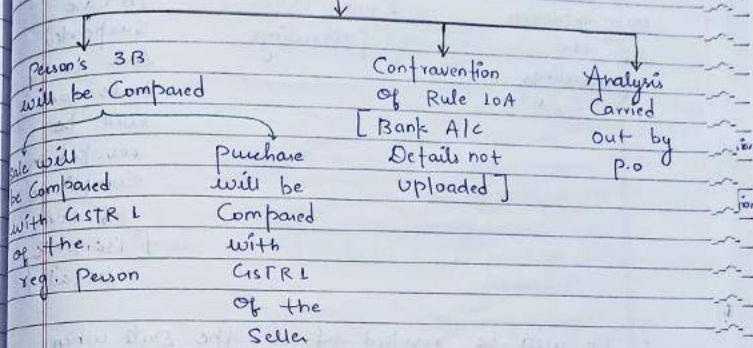 Person's 3B
will be Compared
Sale will
be Compared
with GSTR 1
of the
reg. Person
purchase
will be
Compared
with
GSTR 1
of the
Seller
Contravention
of Rule 10A
[Bank A/c
Details not
uploaded]
Analysis
Carried
out by
P.O